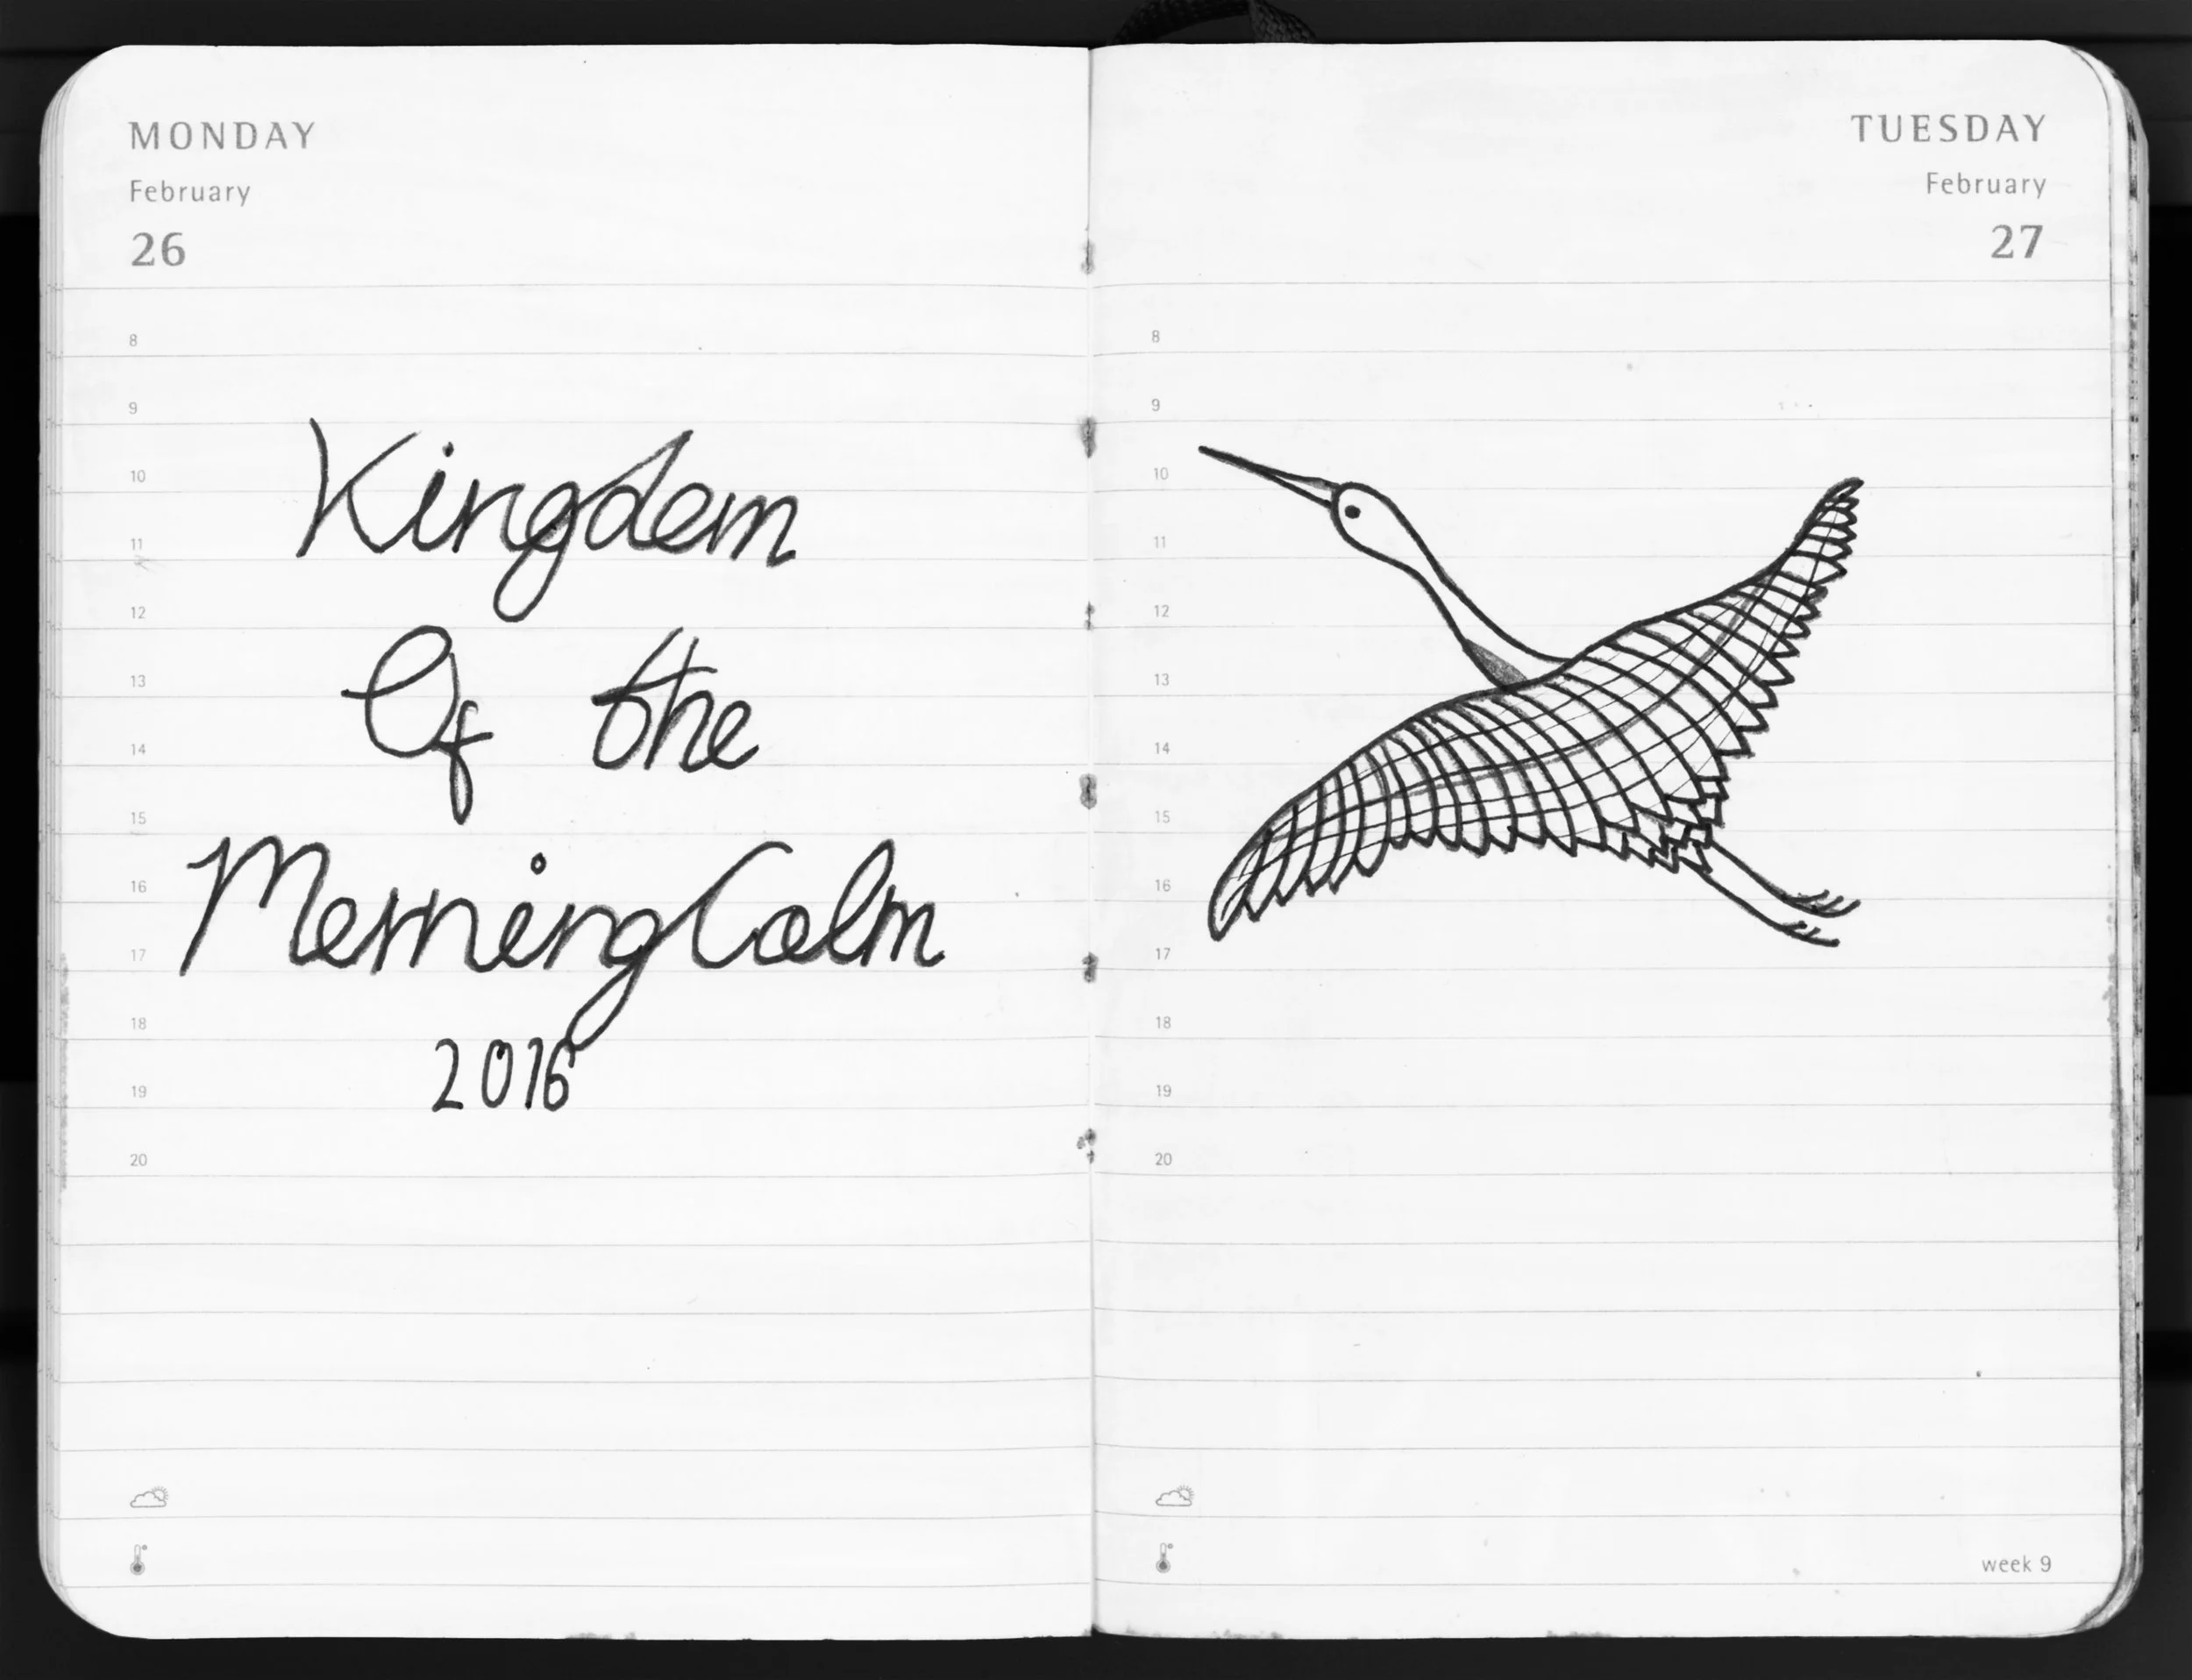 MONDAY
February
26
8
9
10
11
12
13
14
15
16
17
18
19
20
Kingdom
Of the
Morning Calm
2016
TUESDAY
February
27
8
9
10
11
12
13
14
15
16
17
18
19
20
week 9